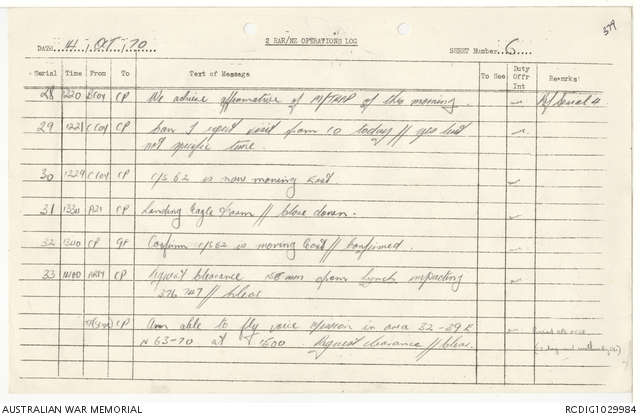 379
2 RAR/NZ OPERATIONS LOG
DATE 14 OCT 70 SHEET Number 6
Serial Time From To Text of Message To See Duty Offr Int Remarks
28 1220 B Coy CP We advise affirmative of of this morning. Ref Serial 4
29 1221 C Coy CP Can I expect visit from CO today // yes but
not specific time
30 1229 C Coy CP C/S 62 is now moving East.
31 1330 CP Landing Eagle Farm // close down.
32 1340 CP Confirm C/S 62 is moving East // Confirmed.
33 1400 ARTY CP Request clearance from Lynch impacting
376 747 // clear
CP Am able to fly voice mission in area 32-39 E
N 63-70 at 1500. Request clearance // clear.
AUSTRALIAN WAR MEMORIAL RCDIG1029984